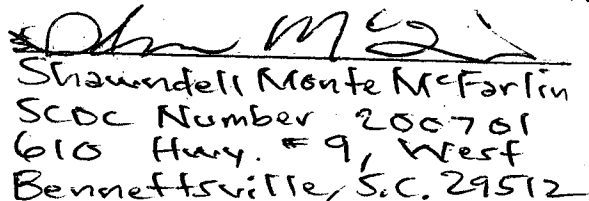 Shawndell Monte McFarlin
SCDC Number 200701
610 Hwy. #9, West
Bennettsville, S.C. 29512